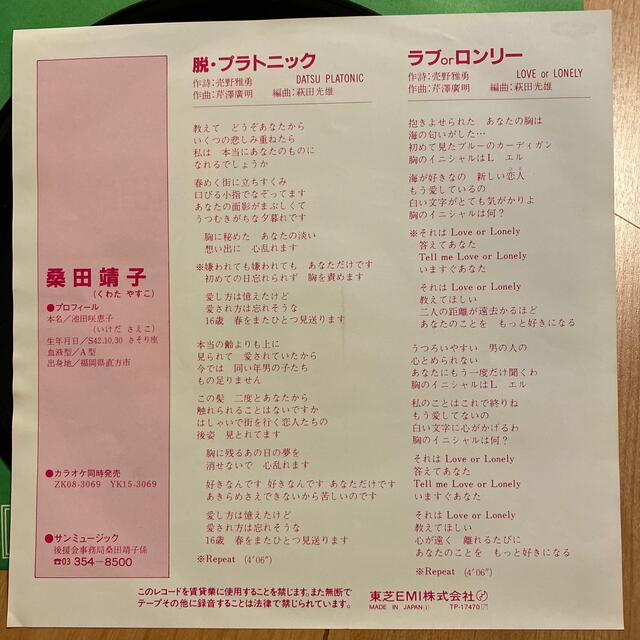 桑田靖子
(くわた やすこ)
●プロフィール
本名/池田咲恵子
(いけだ さえこ)
生年月日/S42.10.30 さそり座
血液型/A型
出身地/福岡県直方市
●カラオケ同時発売
ZK08-3069 YK15-3069
●サンミュージック
後援会事務局桑田靖子係
☎03 354-8500
脱・プラトニック
DATSU PLATONIC
作詩:売野雅勇
作曲:芹澤廣明 編曲:萩田光雄
教えて どうぞあなたから
いくつの悲しみ重ねたら
私は 本当にあなたのものに
なれるでしょうか
春めく街に立ちすくみ
口びる小指でなぞってます
あなたの面影がまぶしくて
うつむきがちな夕暮れです
胸に秘めた あなたの淡い
想い出に 心乱れます
※嫌われても嫌われても あなただけです
初めての日忘れられず 胸を責めます
愛し方は憶えたけど
愛され方は忘れそうな
16歳 春をまたひとつ見送ります
本当の齢よりも上に
見られて 愛されていたから
今では 同い年の男の子たち
もの足りません
この髪 二度とあなたから
触れられることはないですか
はしゃいで街を行く恋人たちの
後姿 見とれてます
胸に残るあの日の夢を
消せないで 心乱れます
好きなんです 好きなんです あなただけです
あきらめさえできないから苦しいのです
愛し方は憶えたけど
愛され方は忘れそうな
16歳 春をまたひとつ見送ります
※Repeat (4'06")
ラブorロンリー
LOVE or LONELY
作詩:売野雅勇
作曲:芹澤廣明 編曲:萩田光雄
抱きよせられた あなたの胸は
海の匂いがした…
初めて見たブルーのカーディガン
胸のイニシャルはL エル
海が好きなの 新しい恋人
もう愛しているの
白い文字がとても気がかりよ
胸のイニシャルは何?
※それは Love or Lonely
答えてあなた
Tell me Love or Lonely
いますぐあなた
それは Love or Lonely
教えてほしい
二人の距離が遠去かるほど
あなたのことを もっと好きになる
うつろいやすい 男の人の
心とめられない
あなたにもう一度だけ聞くわ
胸のイニシャルはL エル
私のことはこれで終りね
もう愛してないの
白い文字に心がかげるわ
胸のイニシャルは何?
それは Love or Lonely
答えてあなた
Tell me Love or Lonely
いますぐあなた
それは Love or Lonely
教えてほしい
心が遠く 離れるたびに
あなたのことを もっと好きになる
※Repeat (4'06")
このレコードを賃貸業に使用することを禁じます。また無断で
テープその他に録音することは法律で禁じられています。
東芝EMI株式会社
MADE IN JAPAN
TP-17470